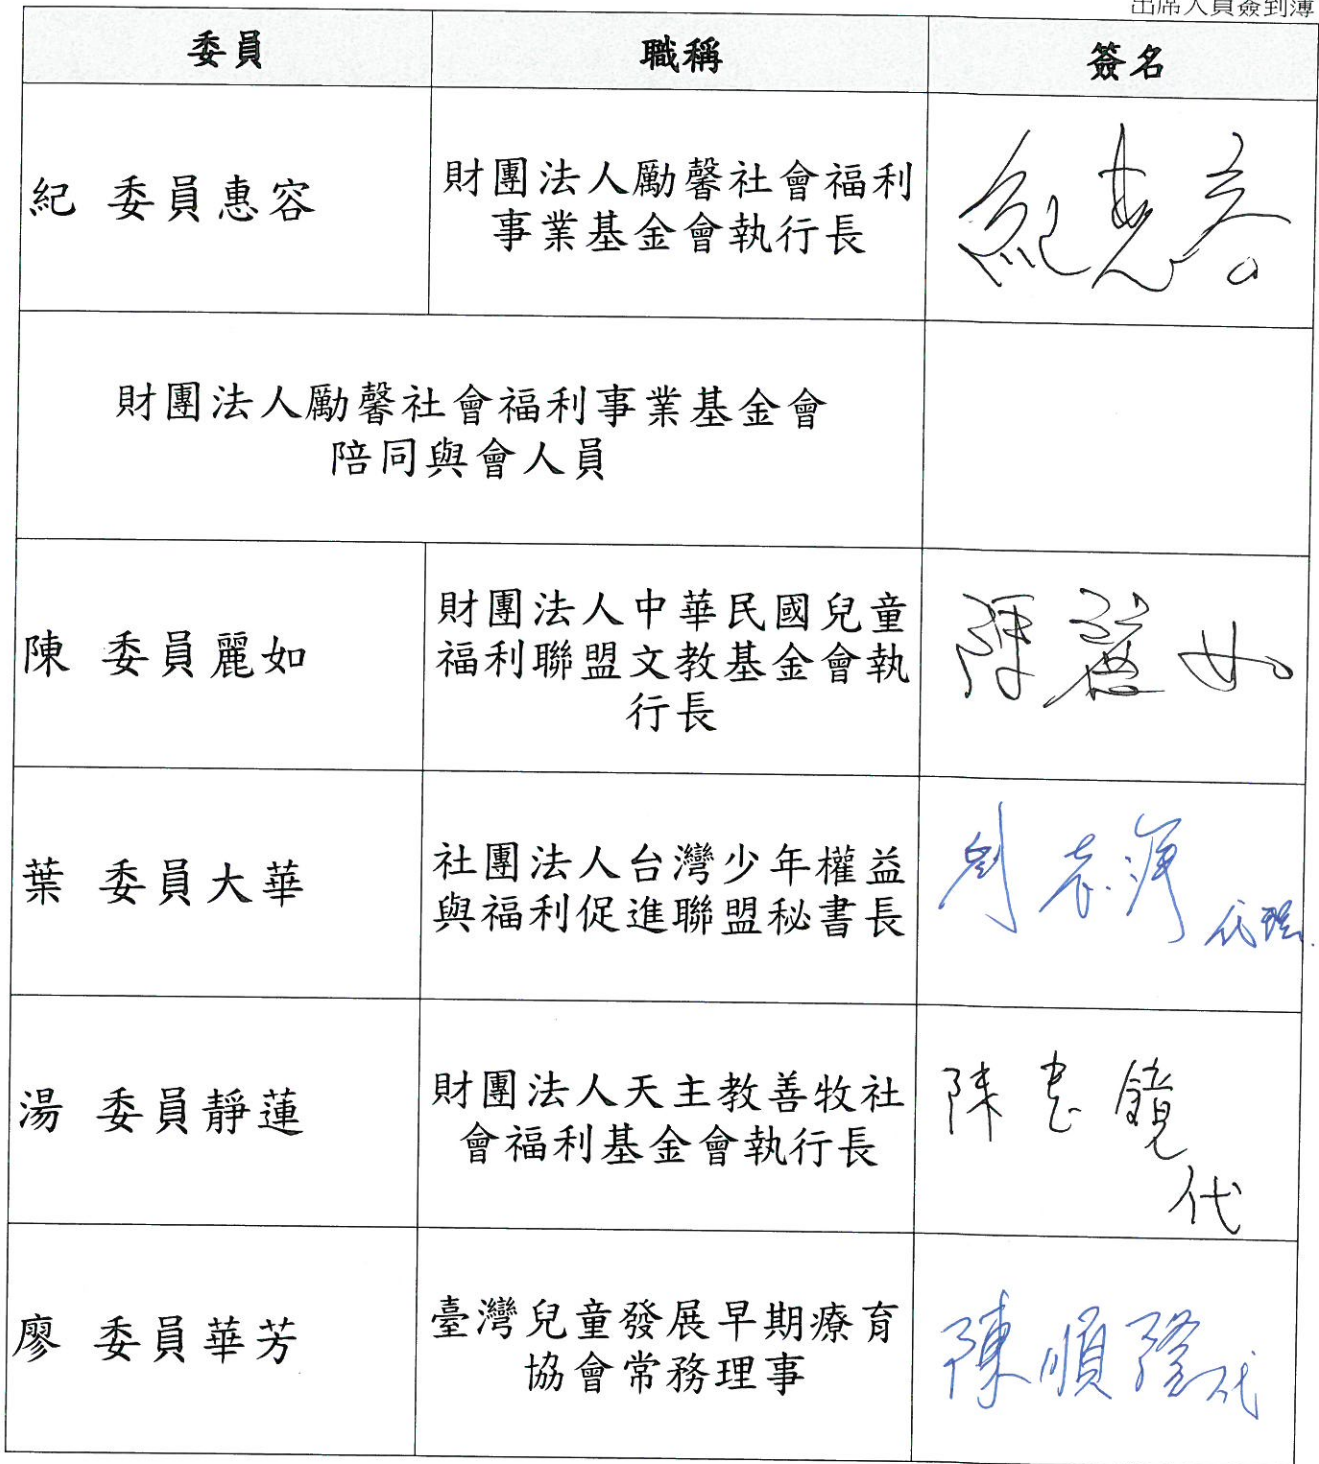 出席人員簽到簿
委員 職稱 簽名
紀 委員惠容
財團法人勵馨社會福利
事業基金會執行長
紀惠容
財團法人勵馨社會福利事業基金會
陪同與會人員
陳 委員麗如
財團法人中華民國兒童
福利聯盟文教基金會執
行長
陳麗如
葉 委員大華
社團法人台灣少年權益
與福利促進聯盟秘書長
代理
湯 委員靜蓮
財團法人天主教善牧社
會福利基金會執行長
代
廖 委員華芳
臺灣兒童發展早期療育
協會常務理事
代